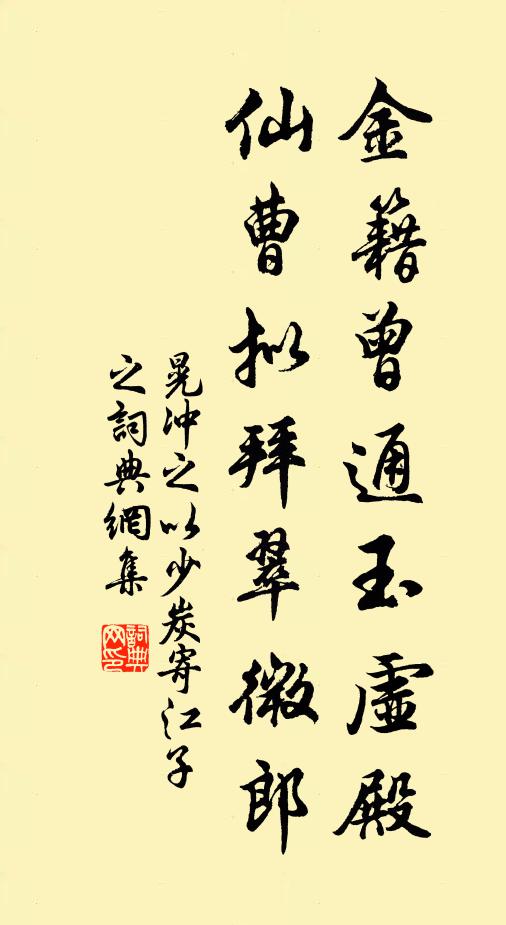 金籍曾通玉虛殿
仙曹拟拜翠微郎
晁沖之以少炭寄江子
之詞典網集
詞典
网印